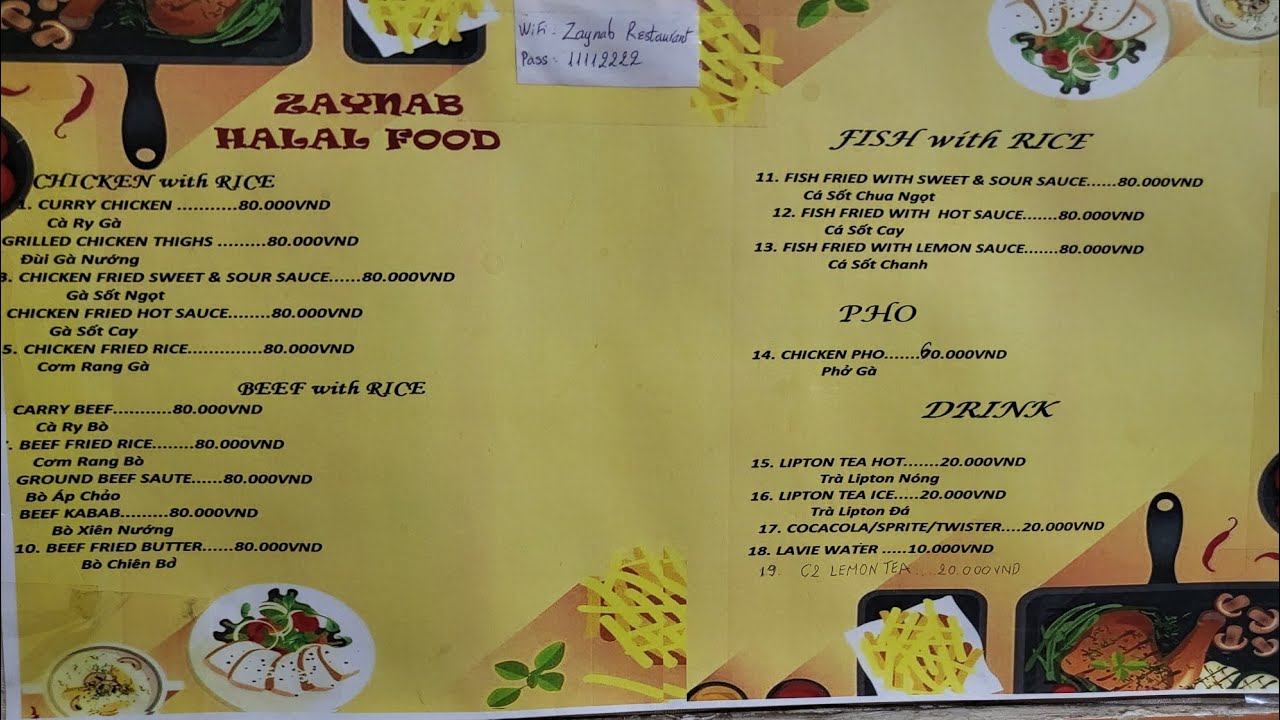 WiFi : Zaynab Restaurant
Pass : 11112222
ZAYNAB
HALAL FOOD
CHICKEN with RICE
1. CURRY CHICKEN ...........80.000VND
Cà Ry Gà
GRILLED CHICKEN THIGHS .........80.000VND
Đùi Gà Nướng
3. CHICKEN FRIED SWEET & SOUR SAUCE......80.000VND
Gà Sốt Ngọt
CHICKEN FRIED HOT SAUCE........80.000VND
Gà Sốt Cay
5. CHICKEN FRIED RICE..............80.000VND
Cơm Rang Gà
BEEF with RICE
CARRY BEEF...........80.000VND
Cà Ry Bò
. BEEF FRIED RICE........80.000VND
Cơm Rang Bò
GROUND BEEF SAUTE......80.000VND
Bò Áp Chảo
BEEF KABAB.........80.000VND
Bò Xiên Nướng
10. BEEF FRIED BUTTER......80.000VND
Bò Chiên Bở
FISH with RICE
11. FISH FRIED WITH SWEET & SOUR SAUCE......80.000VND
Cá Sốt Chua Ngọt
12. FISH FRIED WITH HOT SAUCE.......80.000VND
Cá Sốt Cay
13. FISH FRIED WITH LEMON SAUCE.......80.000VND
Cá Sốt Chanh
PHO
14. CHICKEN PHO.......60.000VND
Phở Gà
DRINK
15. LIPTON TEA HOT.......20.000VND
Trà Lipton Nóng
16. LIPTON TEA ICE.....20.000VND
Trà Lipton Đá
17. COCACOLA/SPRITE/TWISTER....20.000VND
18. LAVIE WATER .....10.000VND
19. C2 LEMON TEA ....20.000VND